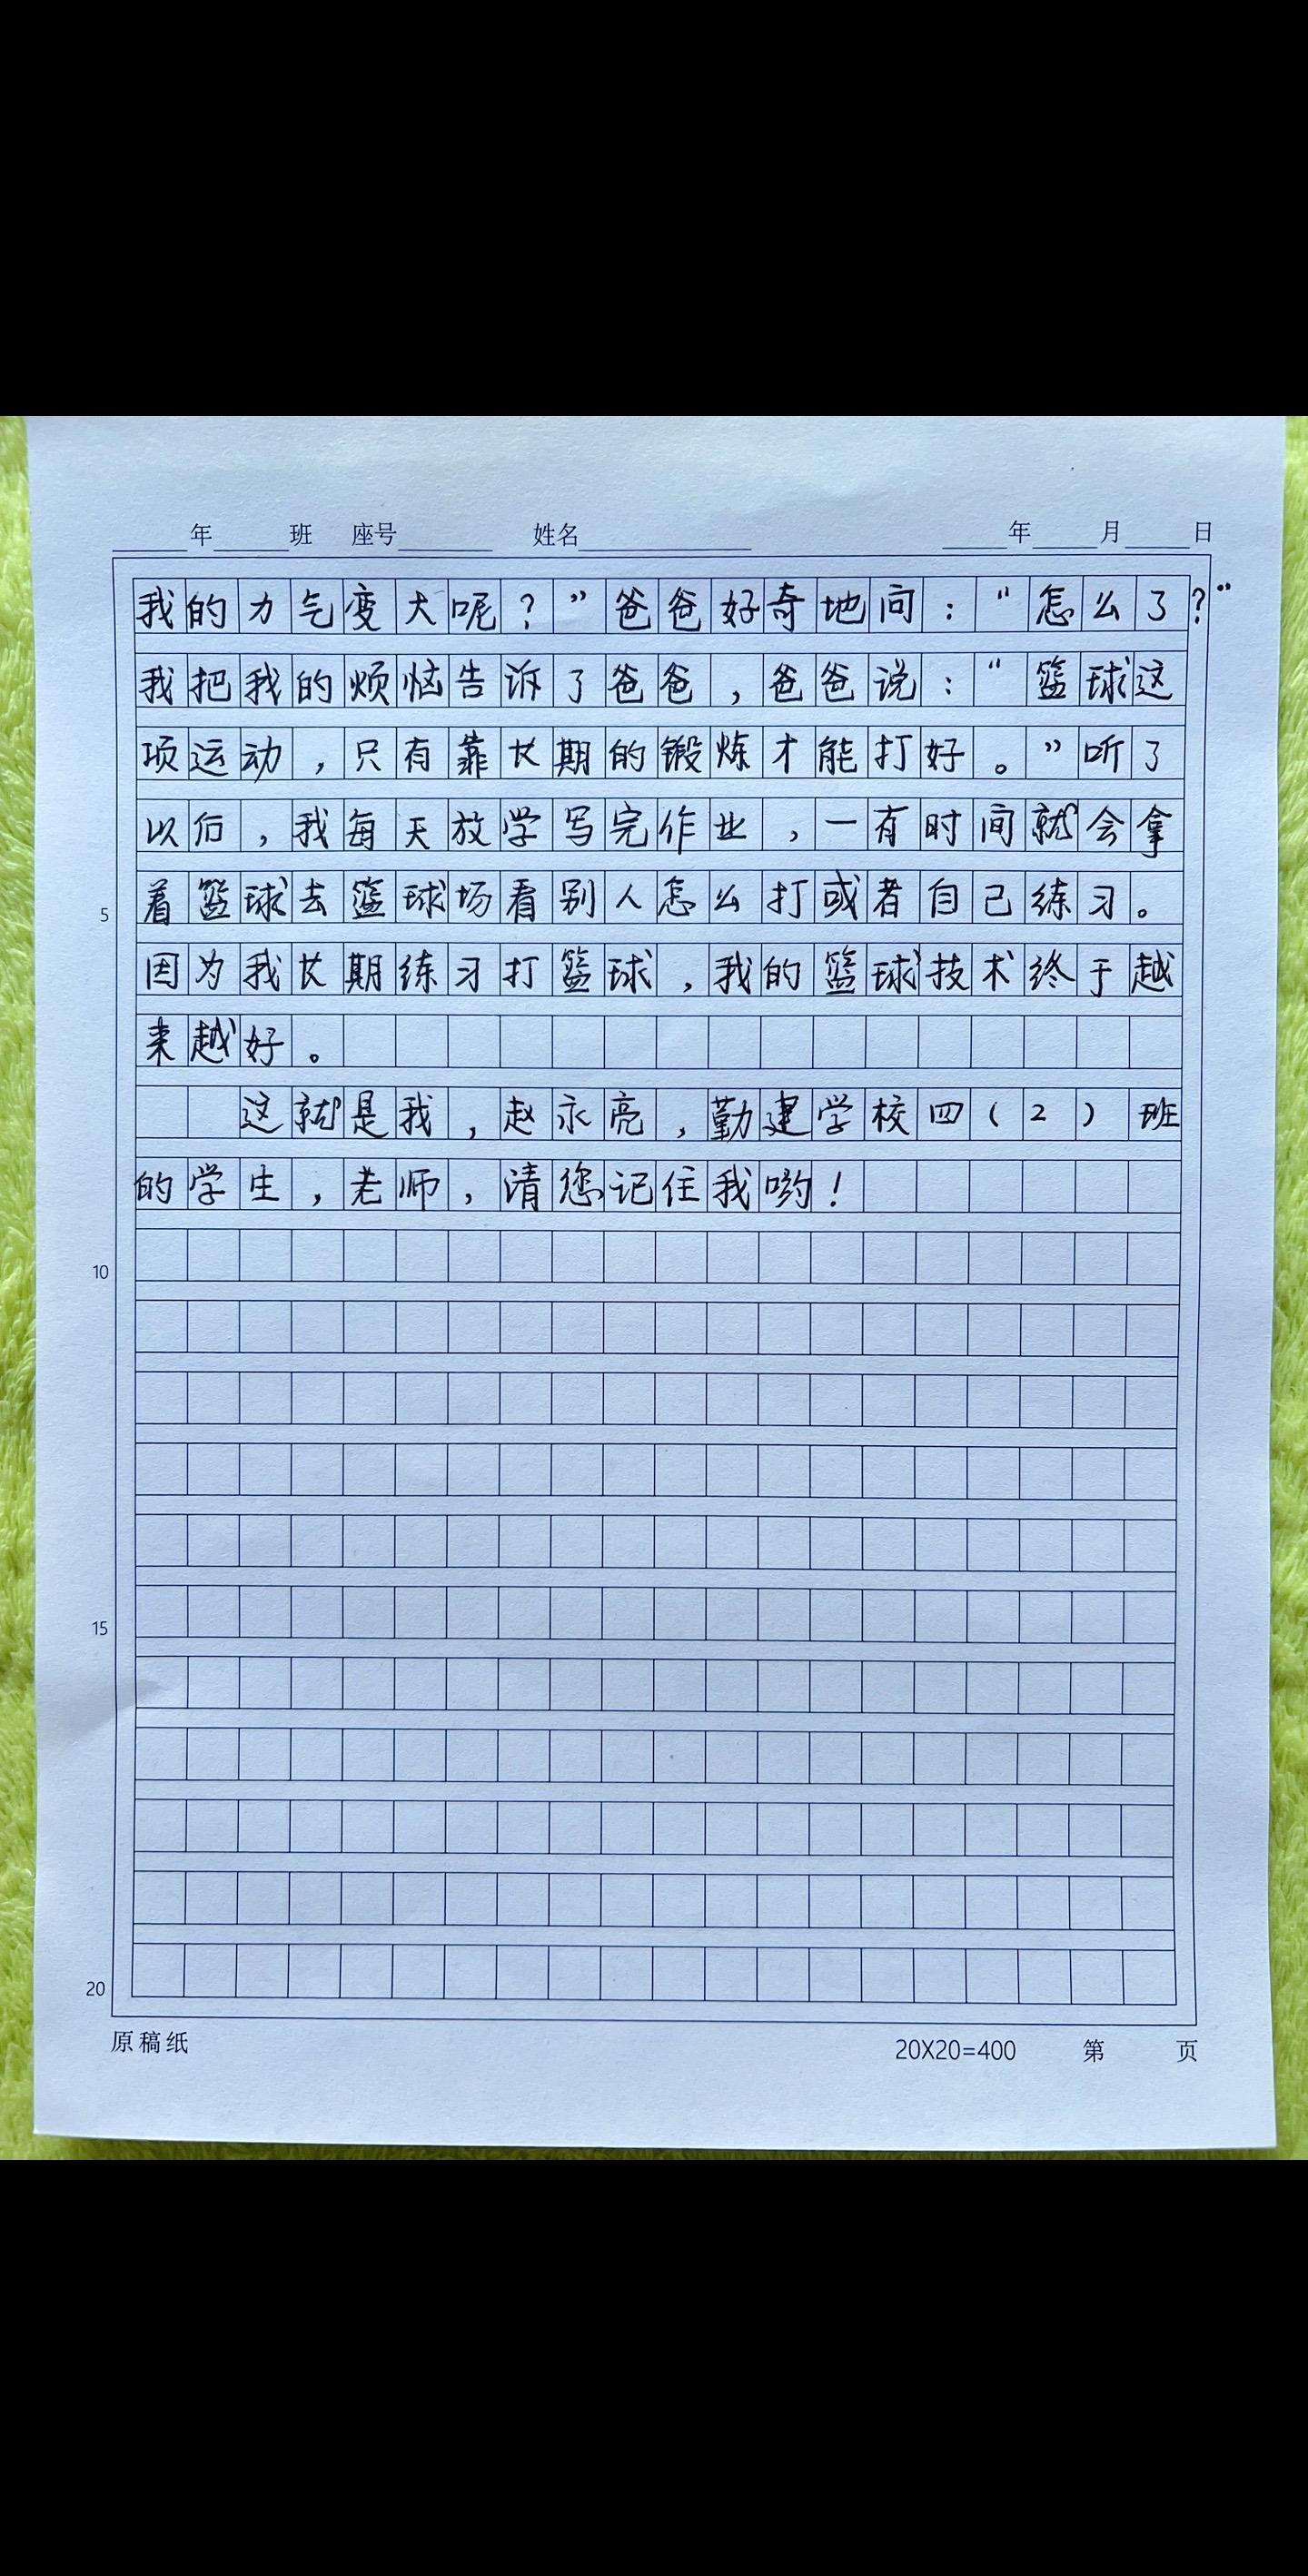 年 班 座号 姓名 年 月 日
我的力气变大呢？”爸爸好奇地问：“怎么了？”
我把我的烦恼告诉了爸爸，爸爸说：“篮球这
项运动，只有靠长期的锻炼才能打好。”听了
以后，我每天放学写完作业，一有时间就会拿
5 着篮球去篮球场看别人怎么打或者自己练习。
因为我长期练习打篮球，我的篮球技术终于越
来越好。
这就是我，赵永亮，勤建学校四（2）班
的学生，老师，请您记住我哟！
10
15
20
原稿纸 20X20=400 第 页